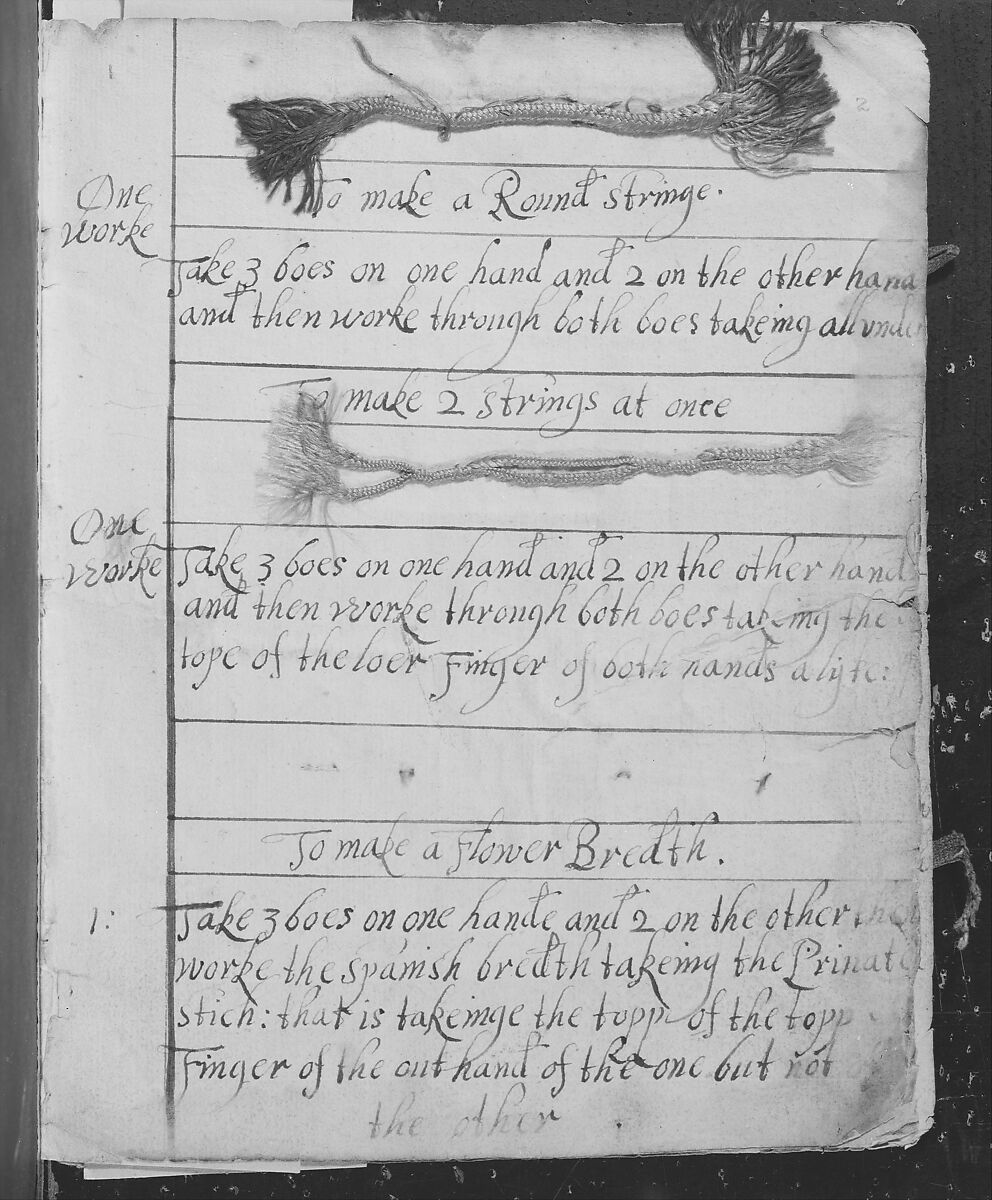 2
One
worke
To make a Round stringe.
Take 3 boes on one hand and 2 on the other hand
and then worke through both boes takeing all vnder
To make 2 strings at once
One
worke
Take 3 boes on one hand and 2 on the other hand
and then worke through both boes takeing the
tope of the loer Finger of both hands alyke:
To make a Flower Bredth.
1:
Take 3 boes on one hande and 2 on the other then
worke the spanish bredth takeing the Priuate
stich: that is takeinge the topp of the topp
Finger of the out hand of the one but not
the other